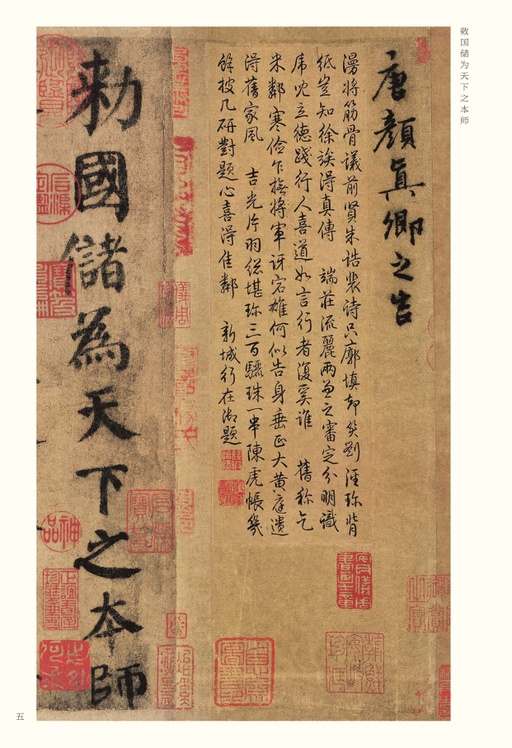 敕国储为天下之本师
唐顏真卿之告
漫將筋骨議前賢朱誥裴詩只廓填却笑劉涇珎背
紙豈知徐得真傳 端莊流麗兩兼之審定分明識
立德踐行人喜道如言行者復奚誰 舊稱乞
米鄰寒儉乍撫將軍訝宕雄何似告身垂正大黃庭遺
得舊家風 吉光片羽總堪珎三百驪珠一串陳虎帳幾
餘披几研對題心喜得佳鄰 新城行在御題
勅國儲為天下之本師
神品
五